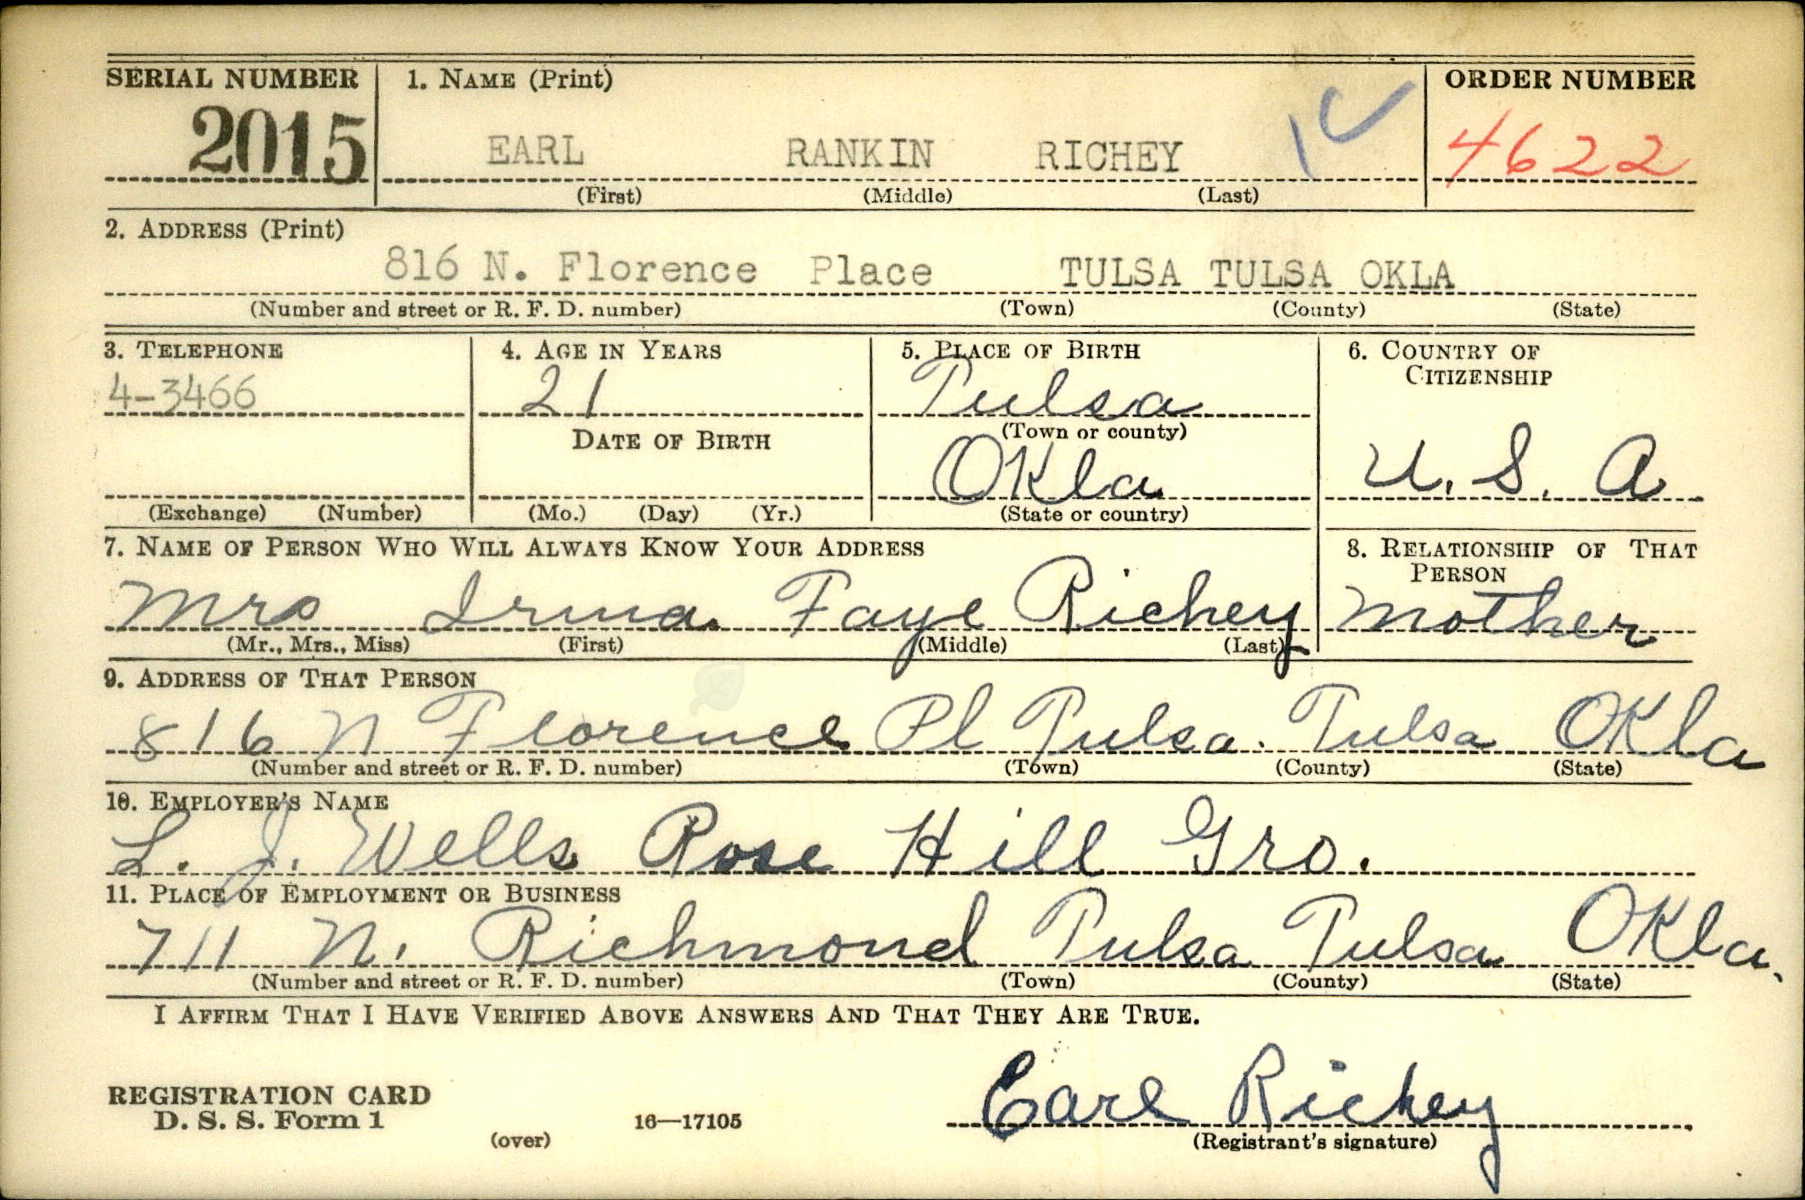 SERIAL NUMBER 1. NAME (Print) ORDER NUMBER
2015 EARL RANKIN RICHEY 1C 4622
(First) (Middle) (Last)
2. ADDRESS (Print)
816 N. Florence Place TULSA TULSA OKLA
(Number and street or R. F. D. number) (Town) (County) (State)
3. TELEPHONE 4. AGE IN YEARS 5. PLACE OF BIRTH 6. COUNTRY OF
CITIZENSHIP
4-3466 21 Tulsa
DATE OF BIRTH (Town or county)
Okla U. S. A.
(Exchange) (Number) (Mo.) (Day) (Yr.) (State or country)
7. NAME OF PERSON WHO WILL ALWAYS KNOW YOUR ADDRESS 8. RELATIONSHIP OF THAT
PERSON
Mrs Irma Faye Richey Mother
(Mr., Mrs., Miss) (First) (Middle) (Last)
9. ADDRESS OF THAT PERSON
816 N Florence Pl Tulsa. Tulsa OKla
(Number and street or R. F. D. number) (Town) (County) (State)
10. EMPLOYER'S NAME
L. J. Wells Rose Hill Gro.
11. PLACE OF EMPLOYMENT OR BUSINESS
711 N. Richmond Tulsa Tulsa OKla.
(Number and street or R. F. D. number) (Town) (County) (State)
I AFFIRM THAT I HAVE VERIFIED ABOVE ANSWERS AND THAT THEY ARE TRUE.
REGISTRATION CARD
D. S. S. Form 1 16—17105 Earl Richey
(over) (Registrant's signature)